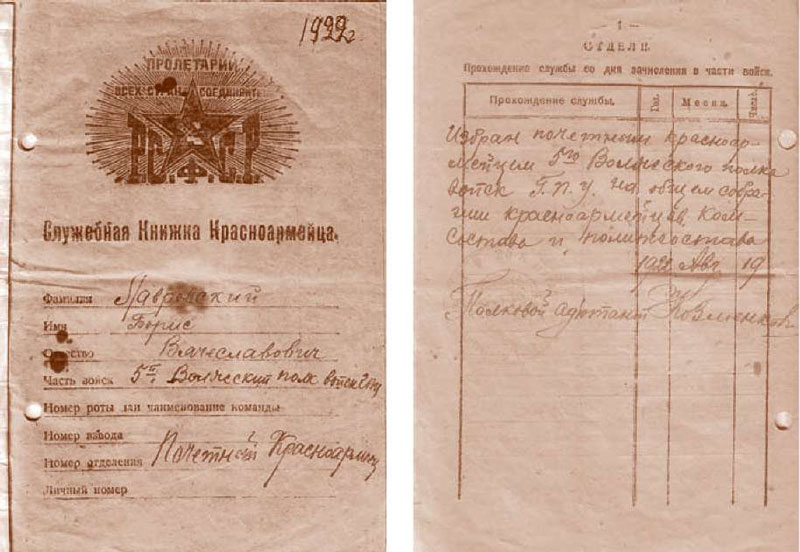 1922г.
ПРОЛЕТАРИИ
ВСЕХ СТРАН СОЕДИНЯЙТЕСЬ
Р.С.Ф.С.Р
Служебная Книжка Красноармейца.
Фамилия Лавровский
Имя Борис
Отчество Вячеславович
Часть войск 5й Волжский полк войск Гпу
Номер роты или наименование команды
Номер взвода
Номер отделения Почетный Красноармеец
Личный номер
— 1 —
ОТДЕЛ II.
Прохождение службы со дня зачисления в части войск.
Прохождение службы. Год. Месяц. Число.
Избран почетным красноар-
мейцем 5го Волжского полка
войск Г.П.У. на общем собра-
нии красноармейцев, Ком-
состава и политсостава
1922 Авг. 19
Полковой адъютант